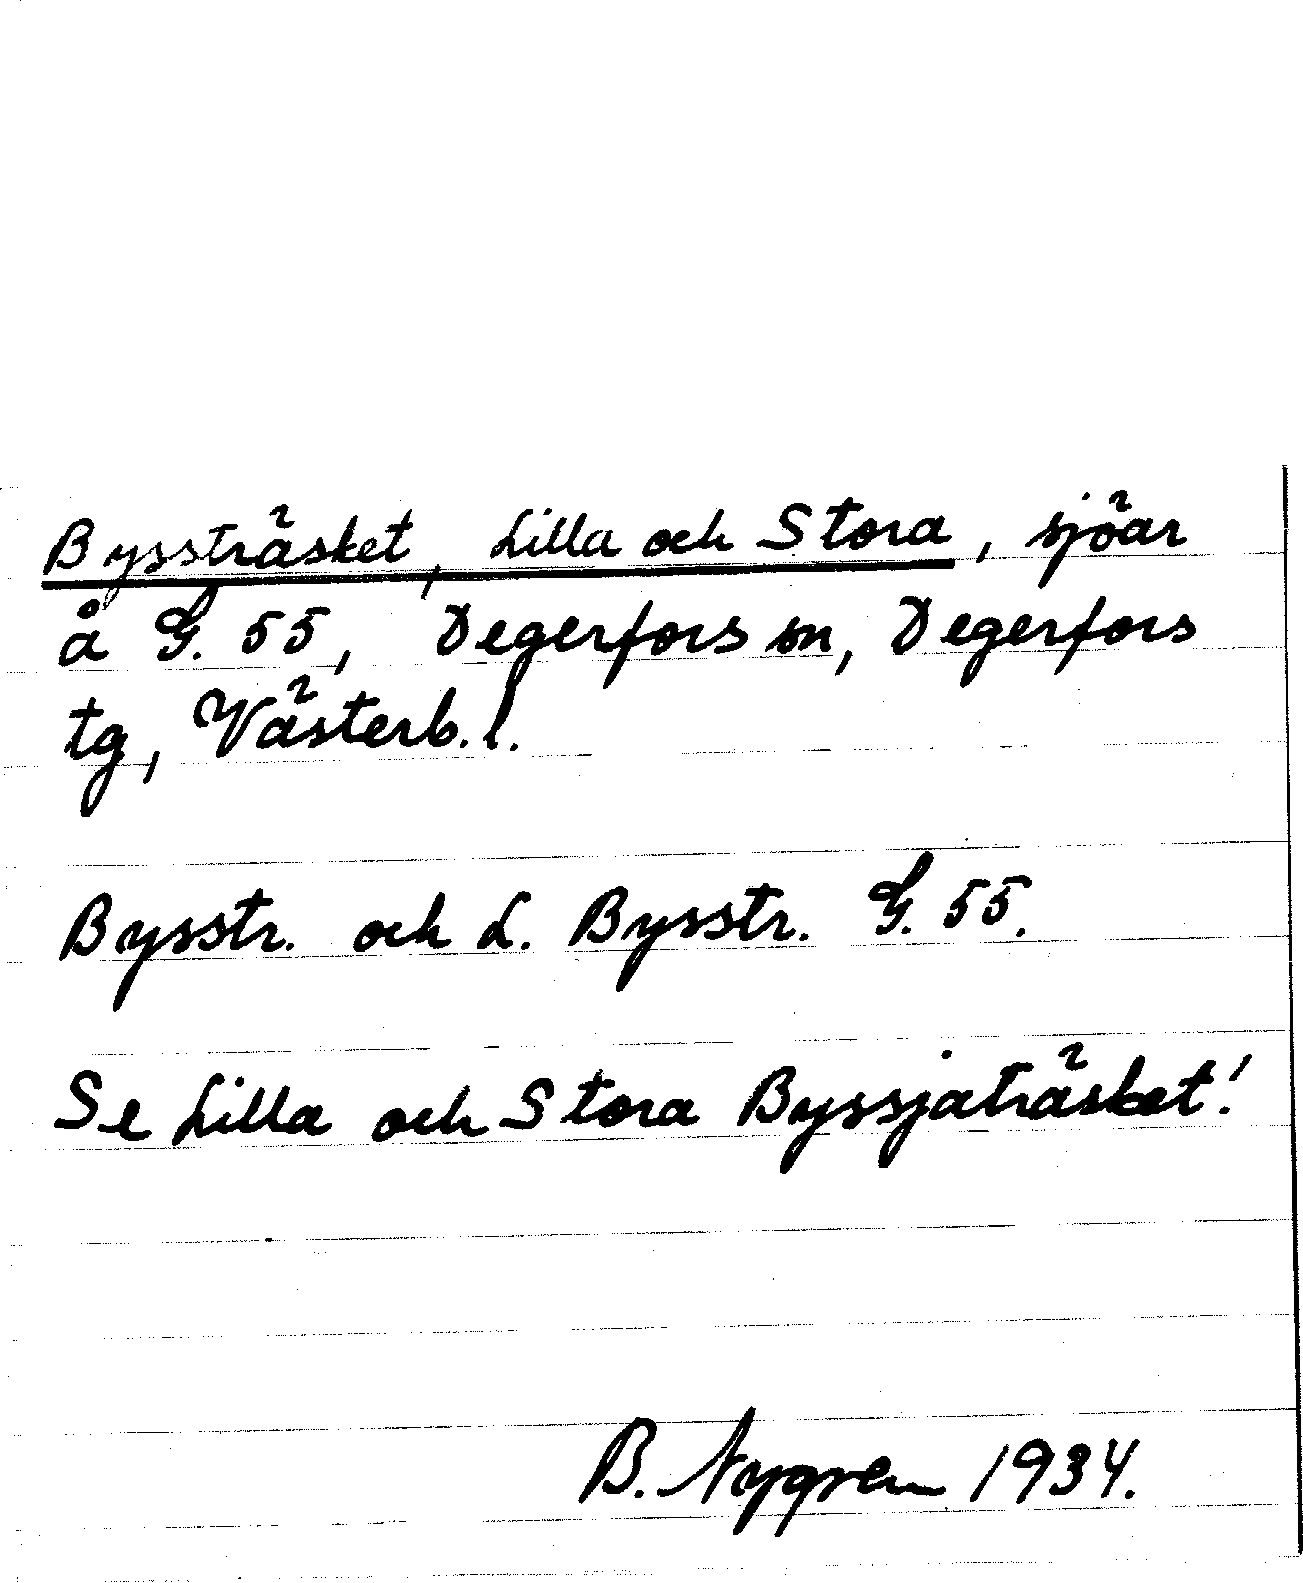 Byssträsket, Lilla och Stora, sjöar
å G. 55, Degerfors sn, Degerfors
tg, Västerb. l.
Bysstr. och L. Bysstr. G. 55.
Se Lilla och Stora Byssjaträsket!
B. Nygren 1934.